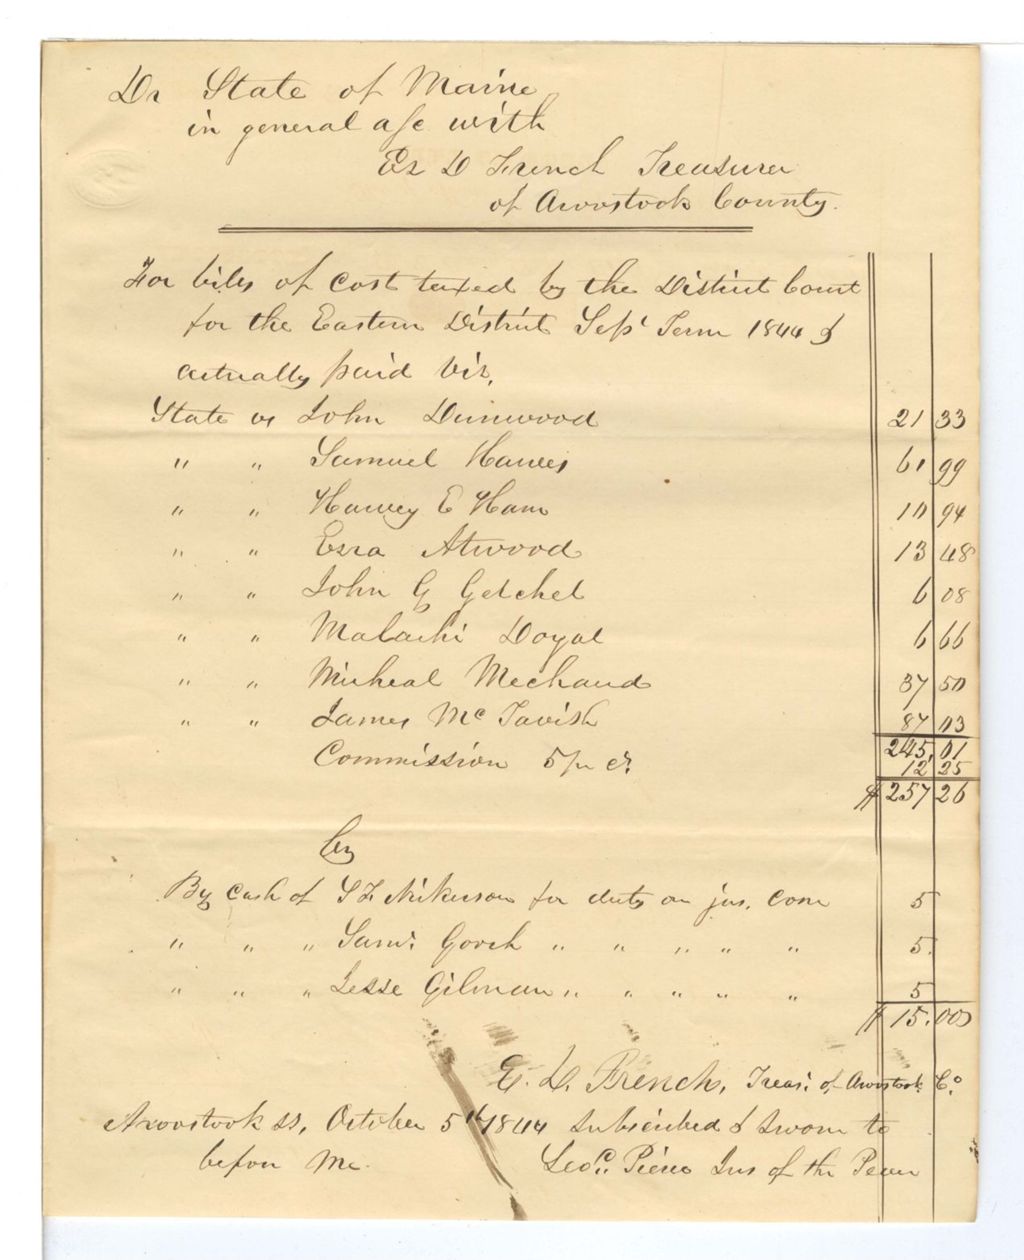 Dr State of Maine
in general a/c with
Ez D French Treasurer
of Aroostook County.
For bills of Cost taxed by the District Court
for the Eastern District Sept Term 1844 &
actually paid viz,
State vs John Dunwood 21 33
" " Samuel Hawes 61 99
" " Harvey E Ham 10 94
" " Ezra Atwood 13 48
" " John G Getchel 6 08
" " Malachi Doyal 6 66
" " Micheal Mechaud 37 50
" " James Mc Tavish 87 03
245,01
Commission 5 pr ct. 12 25
$ 257 26
Cr
By Cash of S L Nikerson for duty on jus, Com 5
" " " Saml. Gooch " " " " " 5.
" " " Jesse Gilman " " " " " 5
$ 15.00
E. D. French, Treas. of Aroostook Co.
Aroostook ss, October 5th 1844 Subscribed & Sworn to
before Me. Jus of the Peace